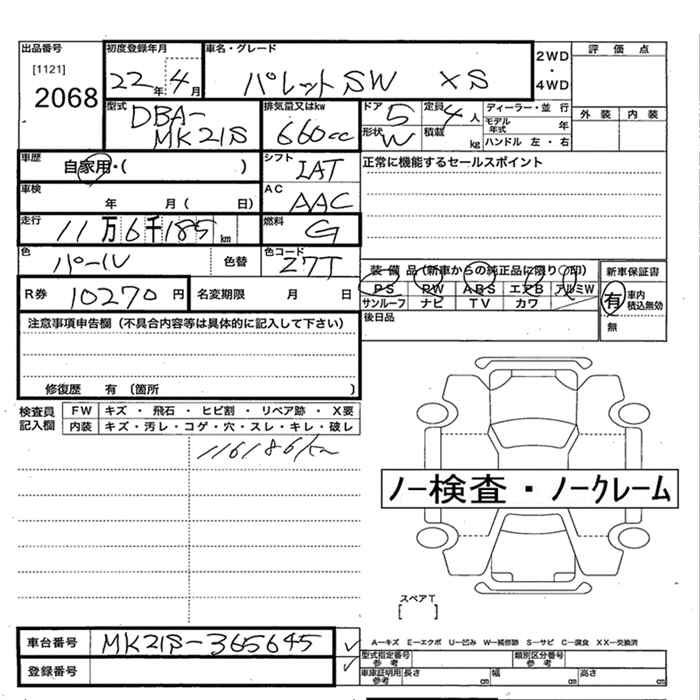 出品番号 初度登録年月 車名・グレード 2WD・4WD 評価点
[1121]
2068 22年 4月 パレットSW XS
型式 排気量又はkw ドア 5 定員 4人 ディーラー・並行 外装 内装
DBA-MK21S 660cc 形状 W 積載 kg モデル年式 年
ハンドル 左・右
車歴 自家用・( ) シフト IAT 正常に機能するセールスポイント
車検 年 月( 日) AC AAC
走行 11万6千185km 燃料 G
色 パール 色替 色コード Z7T 装備品(新車からの純正品に限り○印) 新車保証書
R券 10270円 名変期限 月 日 PS PW ABS エアB アルミW 有 車内積込無効
サンルーフ ナビ TV カワ 無
注意事項申告欄(不具合内容等は具体的に記入して下さい) 後日品
修復歴 有 〔箇所 〕
検査員記入欄 FW キズ・飛石・ヒビ割・リペア跡・X要
内装 キズ・汚レ・コゲ・穴・スレ・キレ・破レ
116186km
ノー検査・ノークレーム
スペアT
[ ]
車台番号 MK21S-365645 A−キズ E−エクボ U−凹み W−補修跡 S−サビ C−腐食 XX−交換済
登録番号 型式指定番号 参考 類別区分番号 参考
車庫証明用 参考 長さ cm 幅 cm 高さ cm